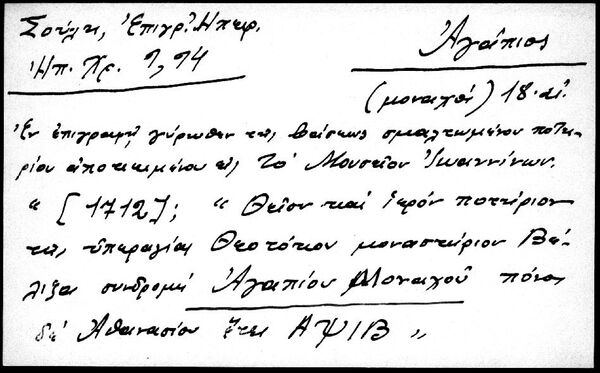 Σούλη, Ἐπιγρ. Ἠπειρ.
Ἠπ. Χρ. 9, 94
Ἀγάπιος
(μοναχός) 18. αἰ.
Ἐν ἐπιγραφῇ γύρωθεν τῆς βάσεως σμαλτωμένου ποτη-
ρίου ἀποκειμένου εἰς τὸ Μουσεῖον Ἰωαννίνων.
" [1712]; " Θεῖον καὶ ἱερόν ποτήριον
τῆς ὑπεραγίας Θεοτόκου μοναστήριον Βε-
λιξᾶ συνδρομῇ Ἀγαπίου Μοναχοῦ πόνος
δέ Ἀθανασίου ἔτει ΑΨΙΒ "